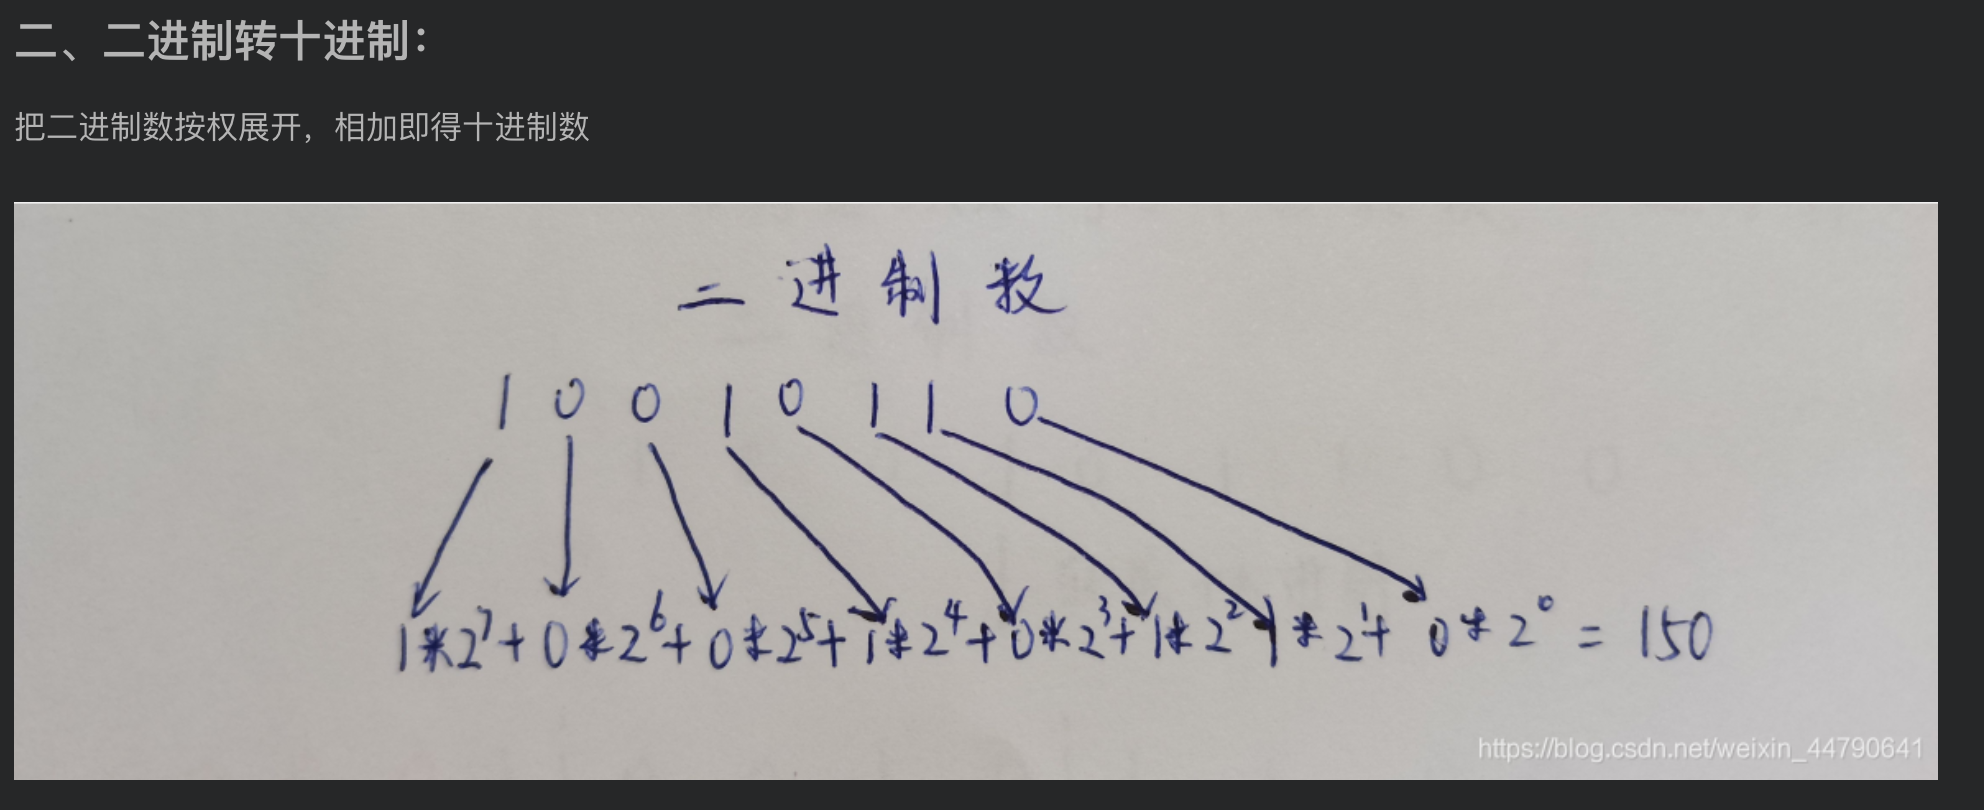 二、二进制转十进制：
把二进制数按权展开，相加即得十进制数
二进制数
1 0 0 1 0 1 1 0
1*2⁷+0*2⁶+0*2⁵+1*2⁴+0*2³+1*2² 1*2¹+0*2⁰=150
https://blog.csdn.net/weixin_44790641